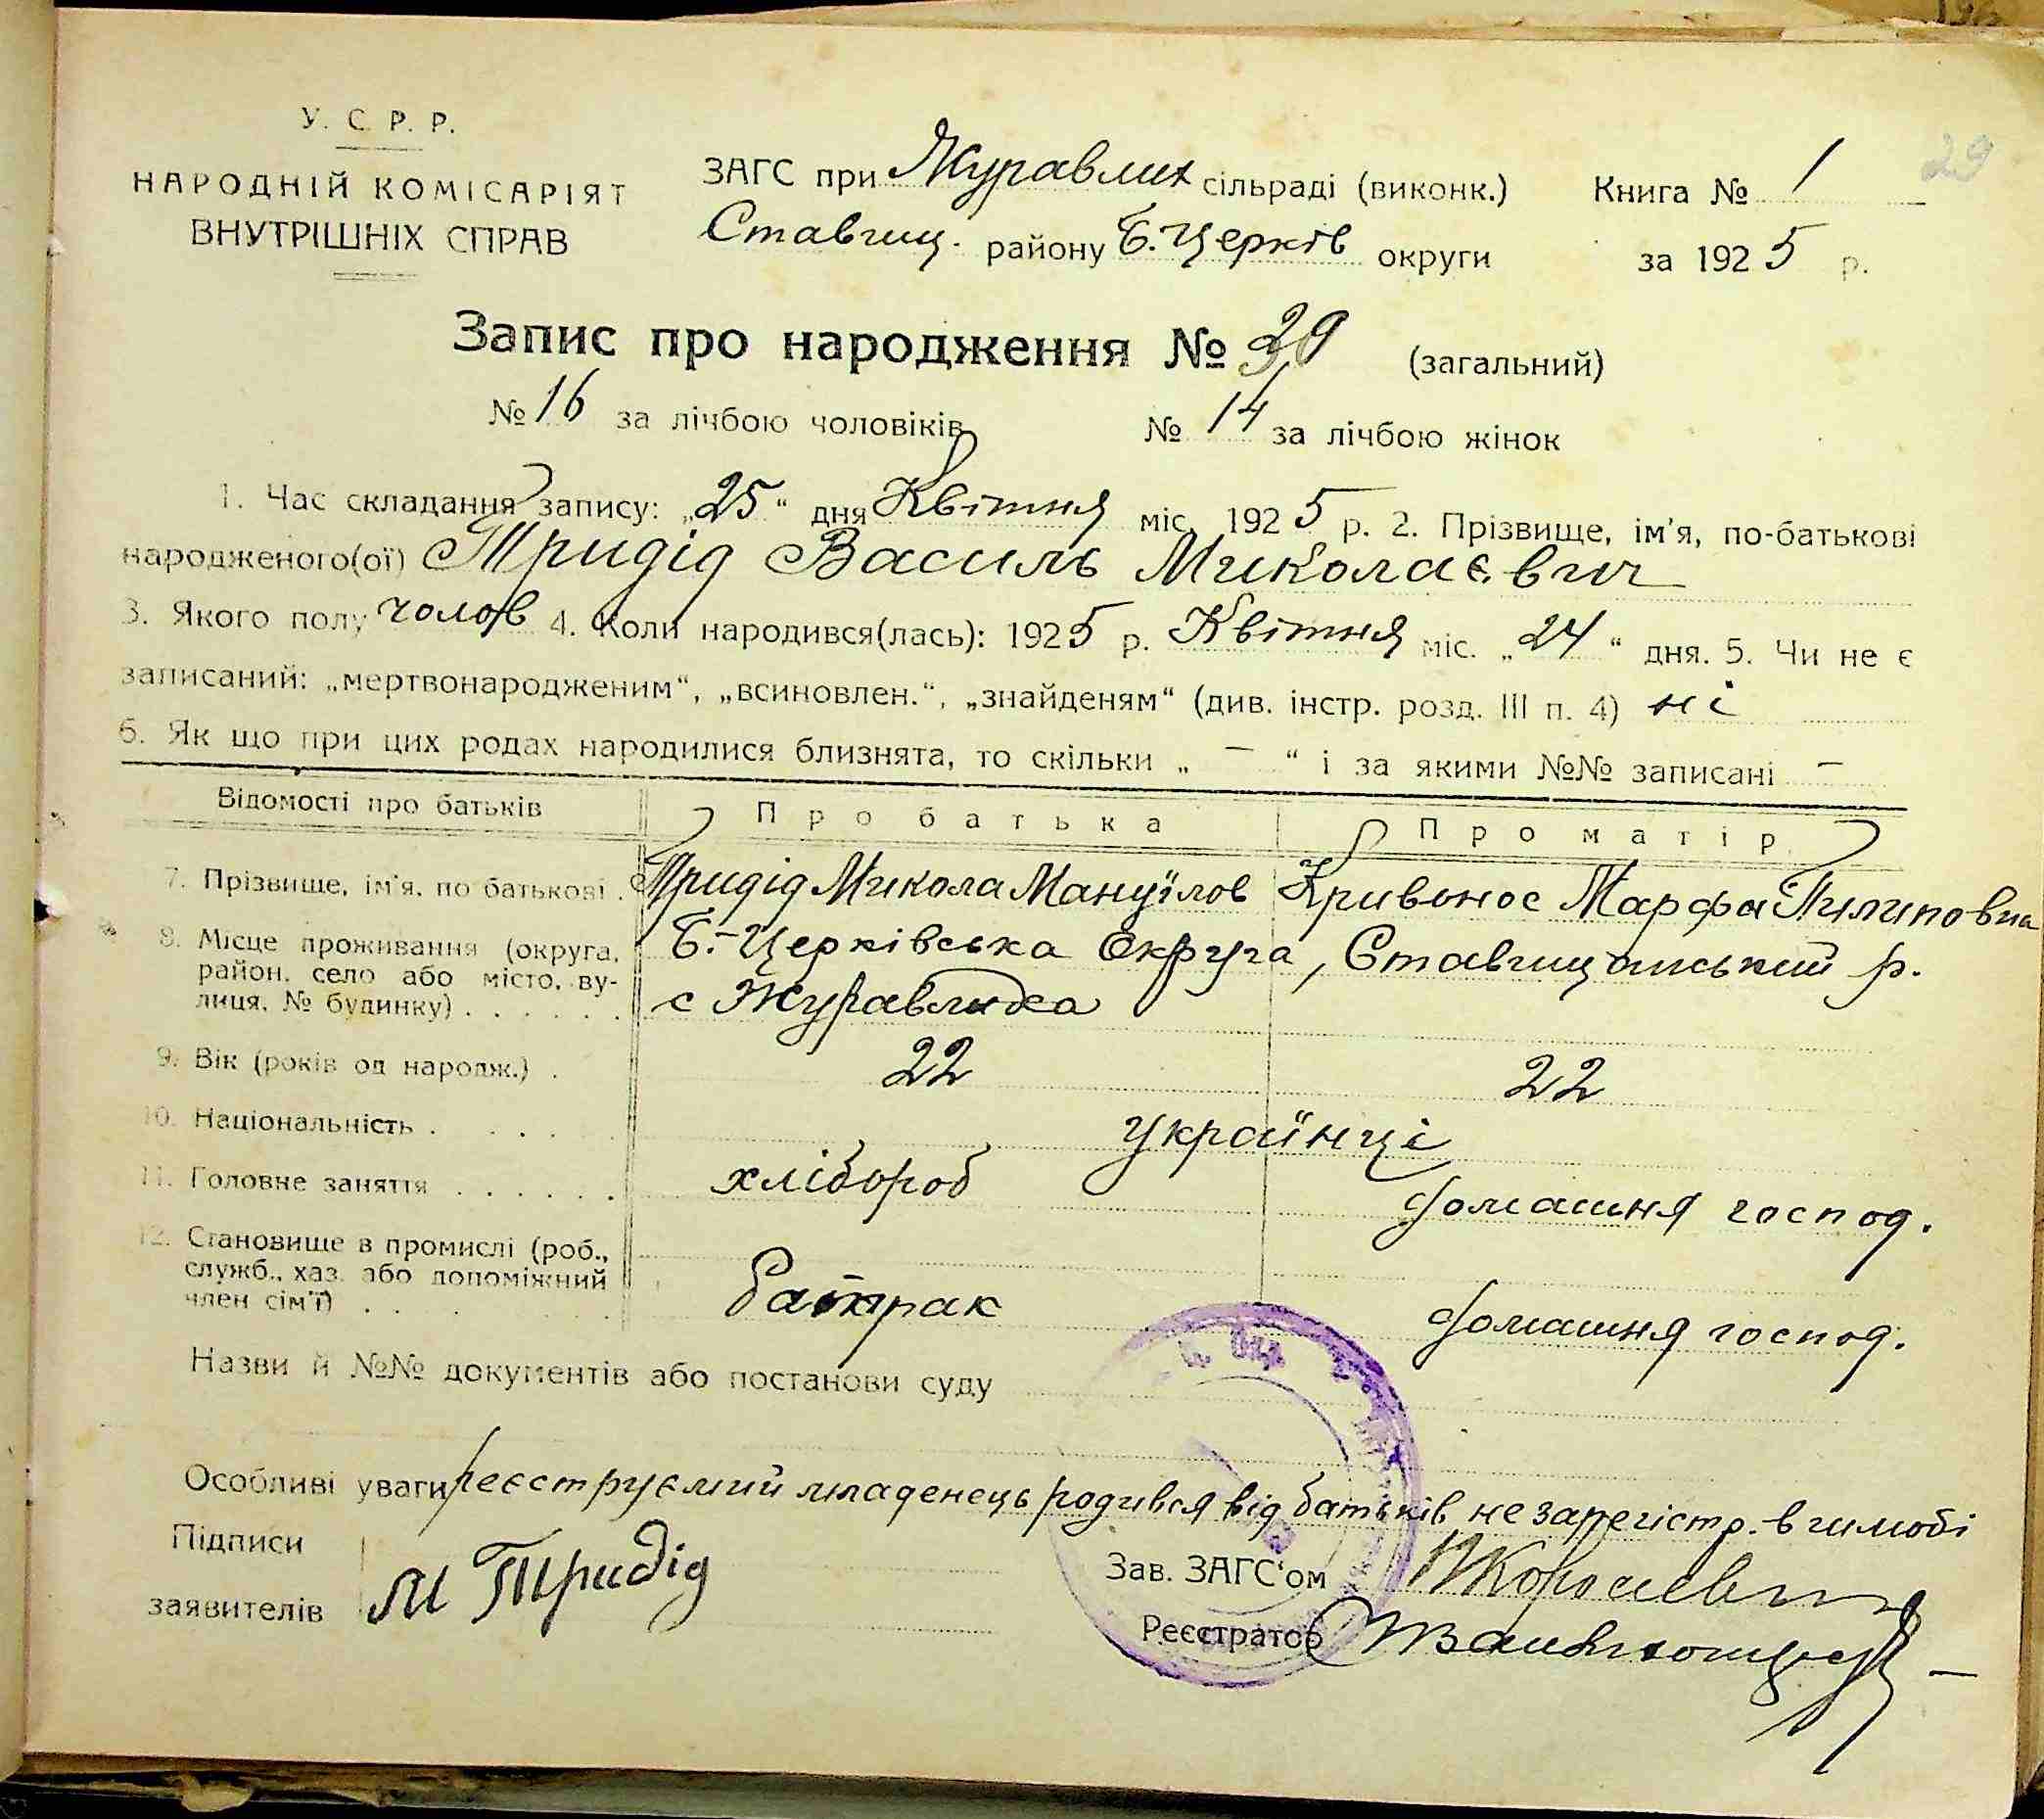 29
У. С. Р. Р.
НАРОДНІЙ КОМІСАРІЯТ
ВНУТРІШНІХ СПРАВ
ЗАГС при Журавлих сільраді (виконк.) Книга № 1
Ставищ. району Б. Церків округи за 1925 р.
Запис про народження № 30 (загальний)
№ 16 за лічбою чоловіків № 14 за лічбою жінок
1. Час складання запису: „25“ дня Квітня міс. 1925 р. 2. Прізвище, ім'я, по-батькові
народженого(ої) Тридід Василь Миколаєвич
3. Якого полу чолов 4. Коли народився(лась): 1925 р. Квітня міс. „24“ дня. 5. Чи не є
записаний: „мертвонародженим“, „всиновлен.“, „знайденям“ (див. інстр. розд. III п. 4) ні
6. Як що при цих родах народилися близнята, то скільки „ — “ і за якими №№ записані —
Відомості про батьків Про батька Про матір
7. Прізвище, ім'я, по батькові . Тридід Микола Мануїлов Кривонос Марфа Пилиповна
8. Місце проживання (округа, Б.-Церківська Округа, Ставищанський р.
район, село або місто, ву-
лиця, № будинку) . . . . . . с Журавлиха
9. Вік (років од народж.) . 22 22
10. Національність . . . . Українці
11. Головне заняття . . . . . . хлібороб домашня господ.
12. Становище в промислі (роб.,
служб., хаз. або допоміжний
член сім'ї) . . . батрак домашня господ.
Назви й №№ документів або постанови суду
Особливі уваги реєструємий младенець родився від батьків не зарегістр. в шлюбі
Підписи
заявителів М Тридід
Зав. ЗАГС'ом
Реєстратор